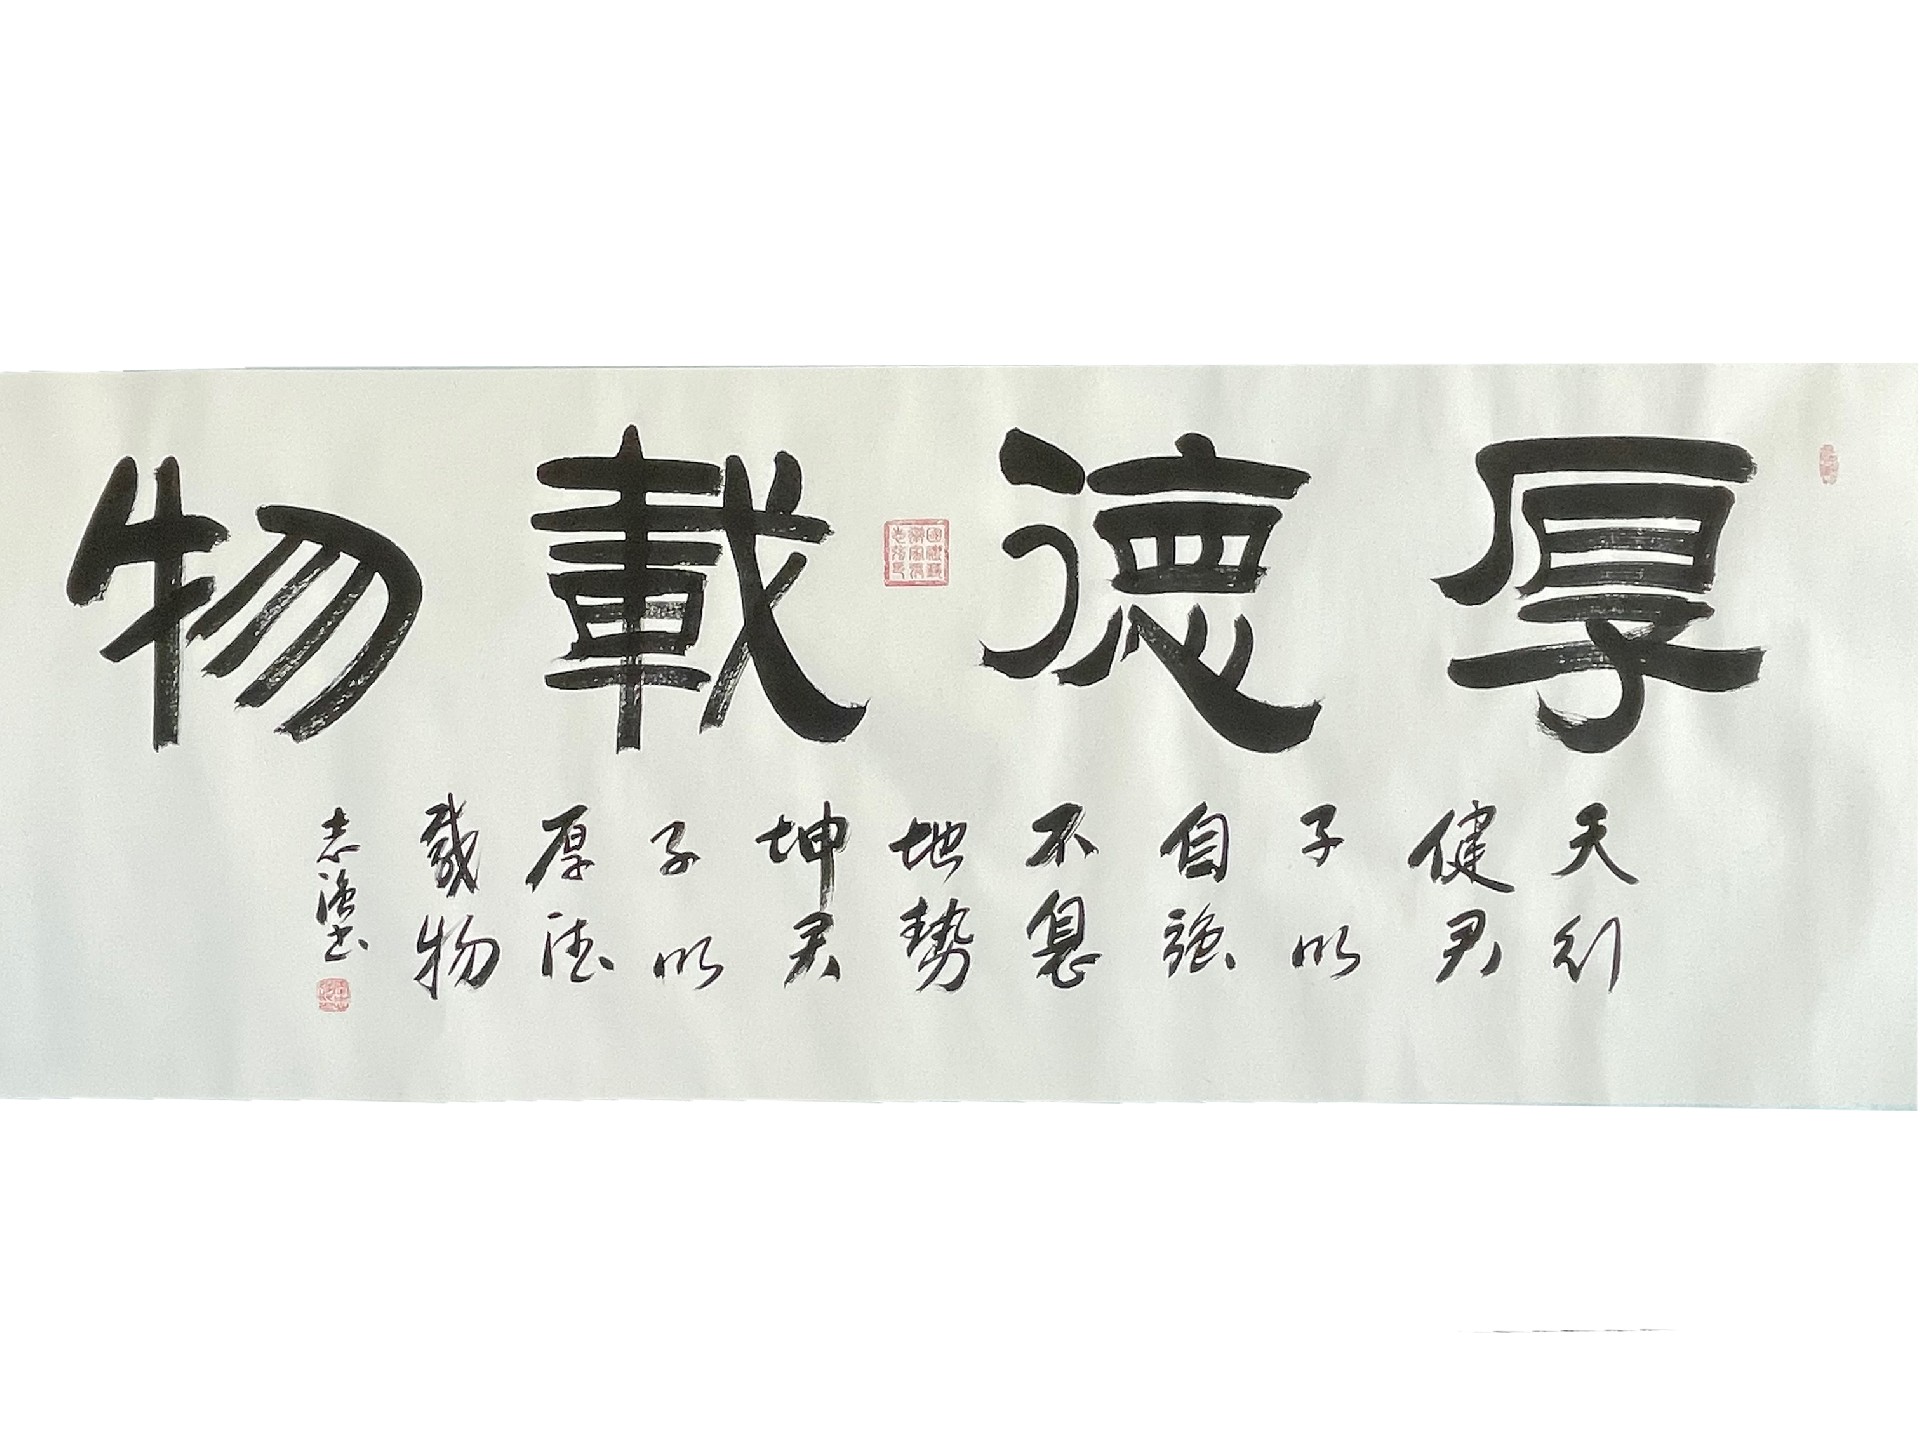 厚德載物
天行
健君
子以
自强
不息
地势
坤君
子以
厚德
载物
志强书